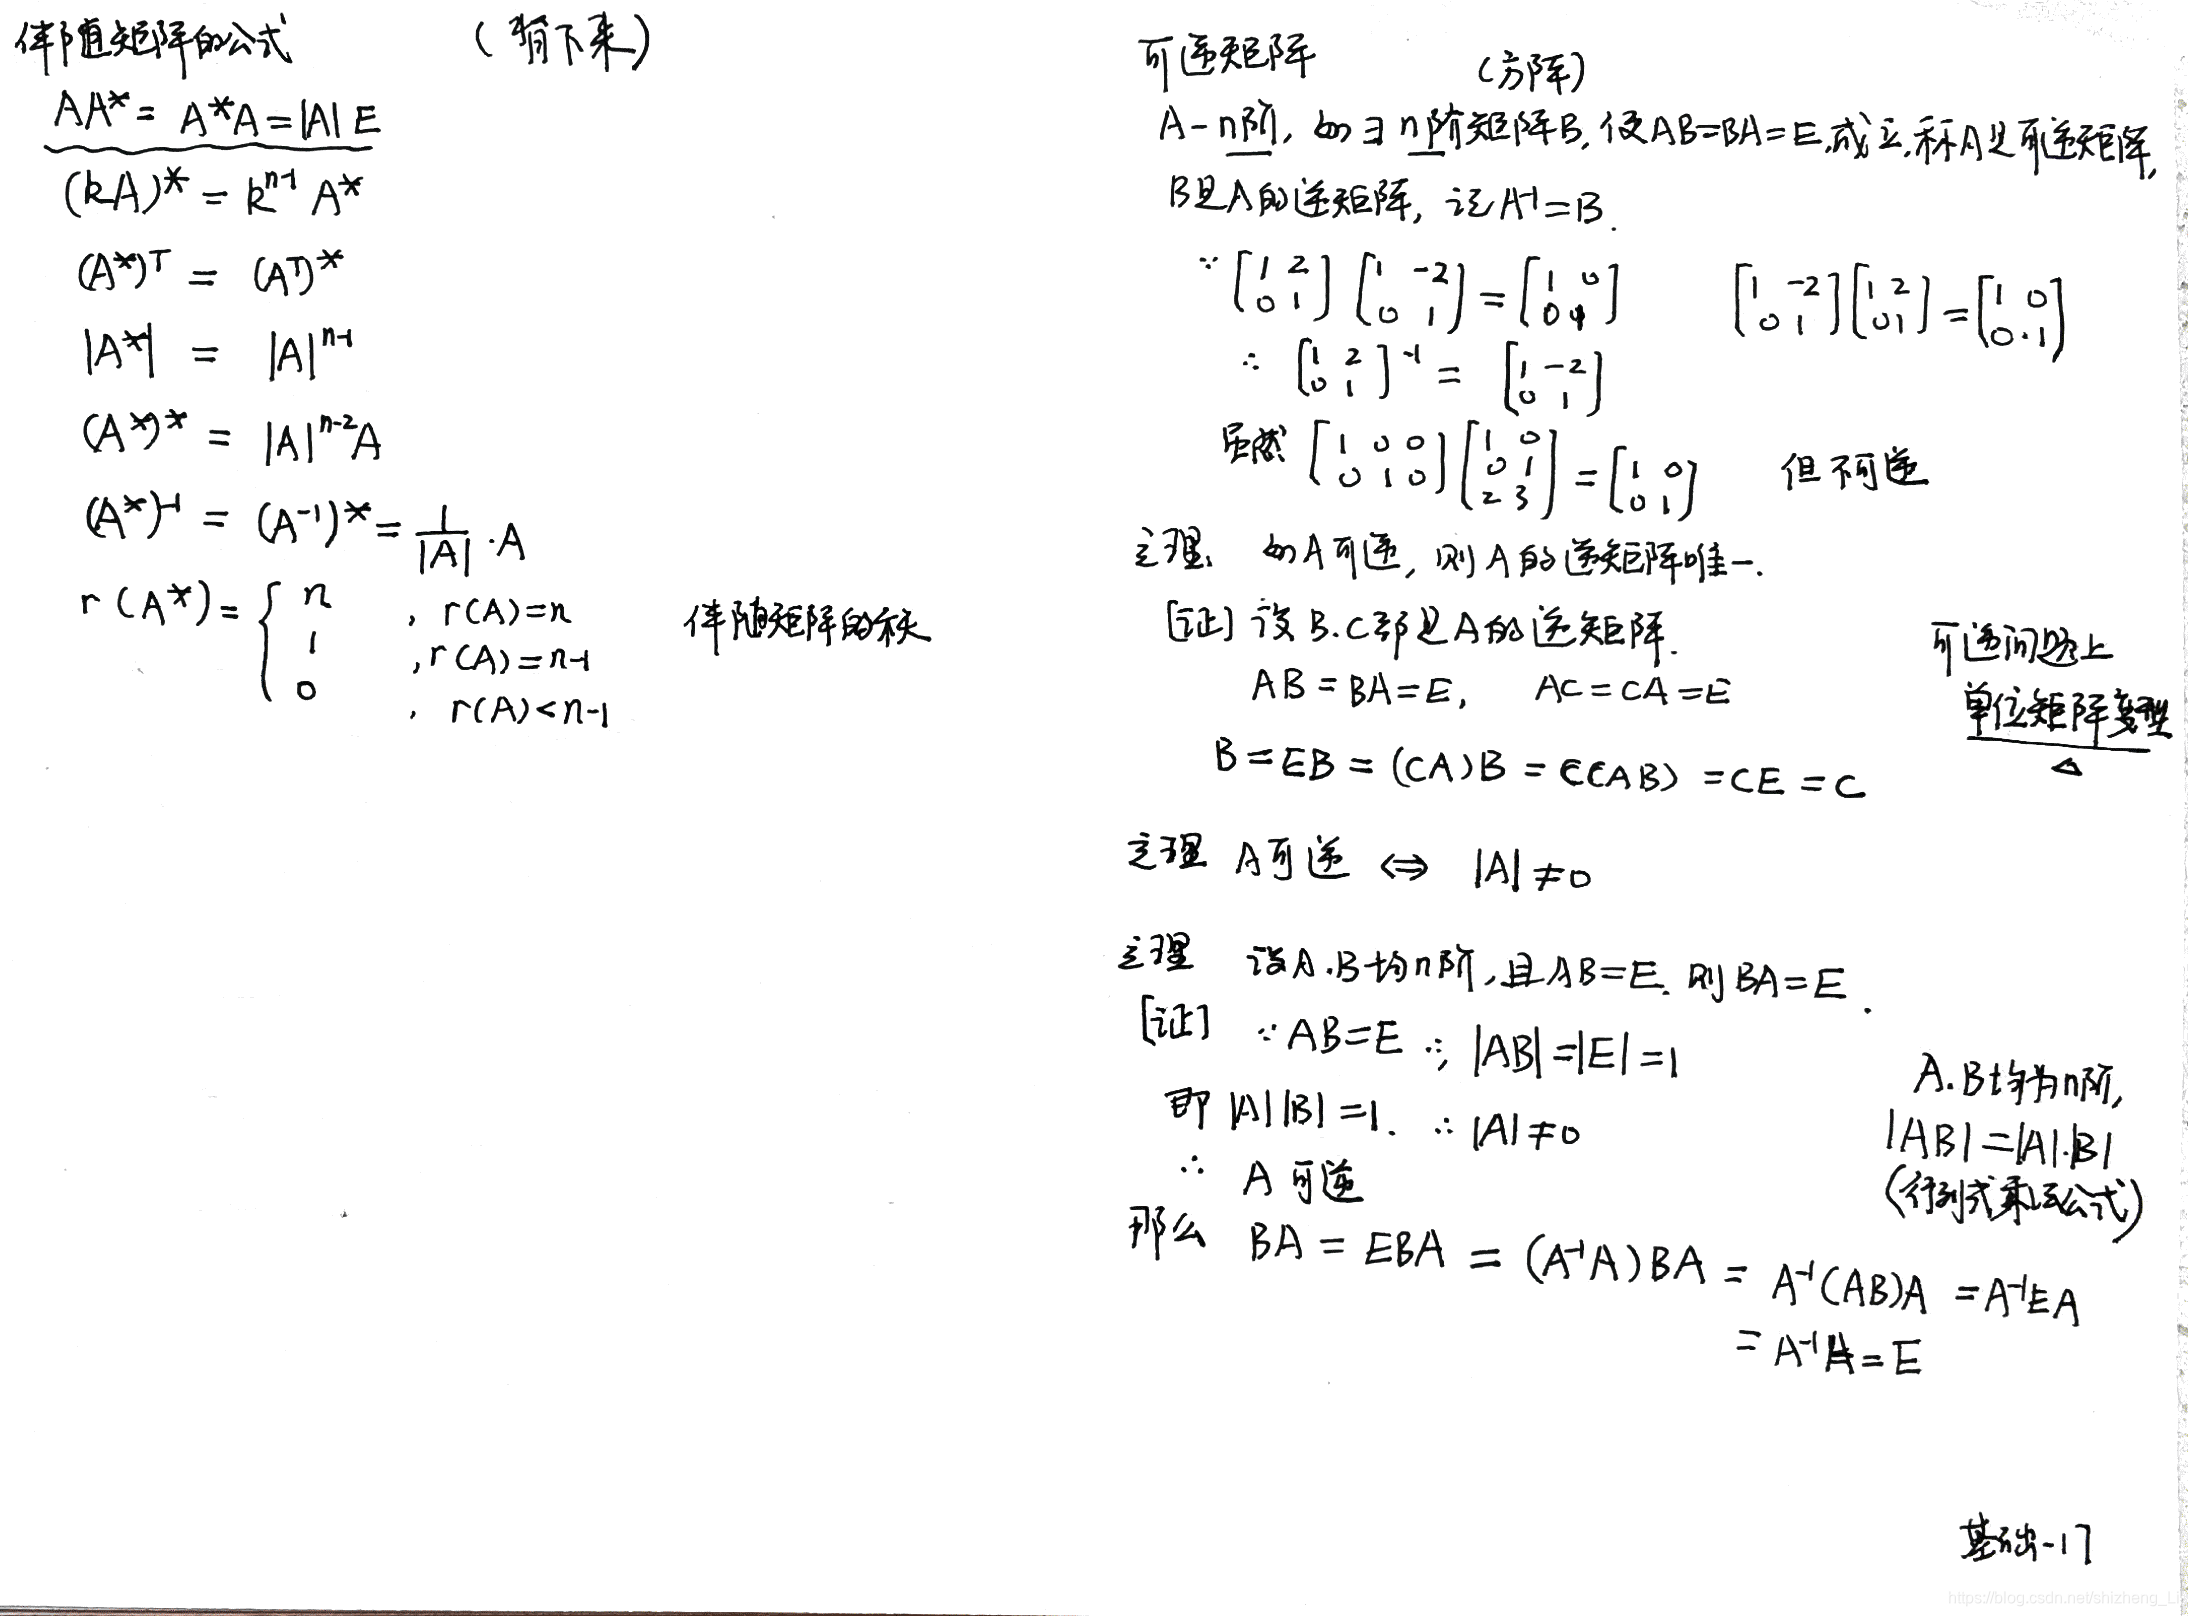 伴随矩阵的公式 (背下来)
AA* = A*A = |A| E
(kA)* = k^{n-1} A*
(A*)^T = (A^T)*
|A*| = |A|^{n-1}
(A*)* = |A|^{n-2} A
(A*)^{-1} = (A^{-1})* = \frac{1}{|A|} · A
r(A*) = { n , r(A)=n 伴随矩阵的秩
1 , r(A)=n-1
0 , r(A)<n-1
可逆矩阵 (方阵)
A-n阶, 如∃n阶矩阵B, 使AB=BA=E,成立,称A是可逆矩阵,
B是A的逆矩阵, 记A^{-1}=B.
∵ [1 2; 0 1] [1 -2; 0 1] = [1 0; 0 1] [1 -2; 0 1] [1 2; 0 1] = [1 0; 0 1]
∴ [1 2; 0 1]^{-1} = [1 -2; 0 1]
虽然 [1 0 0; 0 1 0] [1 0; 0 1; 2 3] = [1 0; 0 1] 但不可逆
定理. 如A可逆, 则A的逆矩阵唯一.
[证] 设B.C都是A的逆矩阵.
AB=BA=E, AC=CA=E
B=EB=(CA)B=C(AB)=CE=C
可逆问题上
单位矩阵变型
△
定理 A可逆 ⇔ |A|≠0
定理 设A.B均n阶,且AB=E. 则BA=E.
[证] ∵AB=E ∴, |AB|=|E|=1
即 |A||B|=1. ∴|A|≠0
∴ A可逆
A.B均为n阶,
|AB|=|A|.|B|
(行列式乘法公式)
那么 BA = EBA = (A^{-1}A)BA = A^{-1}(AB)A = A^{-1}EA
= A^{-1}A = E
基础-17